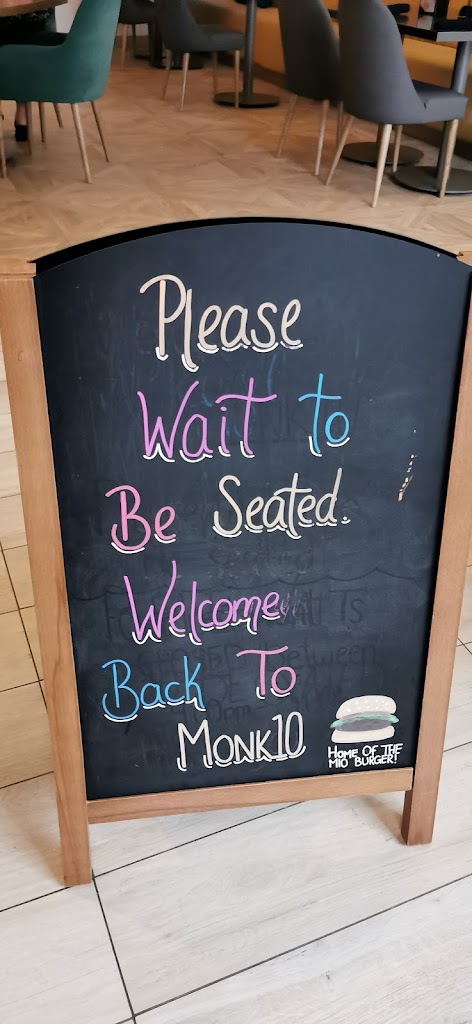 Please
Wait to
Be Seated.
Welcome
Back To
MONK10
HOME OF THE
M10 BURGER!